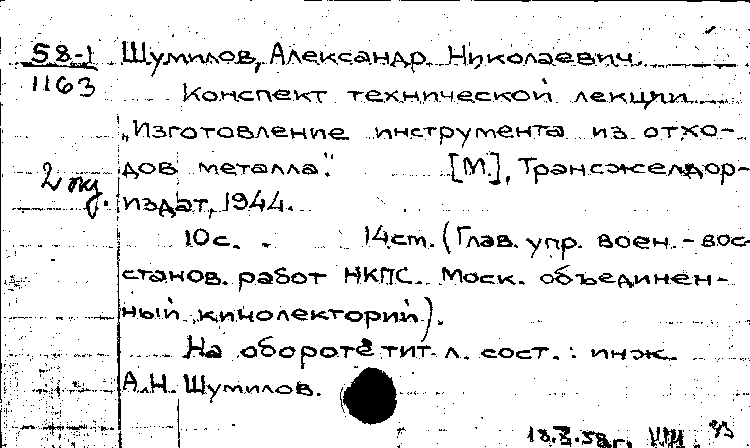 58-1 Шумилов, Александр Николаевич.
1163
Конспект технической лекции
„Изготовление инструмента из отхо-
дов металла". [М.], Трансжелдор-
2 экз. издат, 1944.
10с. 14ст. (Глав. упр. воен.-вос
станов. работ НКПС. Моск. объединен-
ный кинолекторий).
На обороте тит. л. сост.: инж.
А.Н. Шумилов.
18.X.58г.